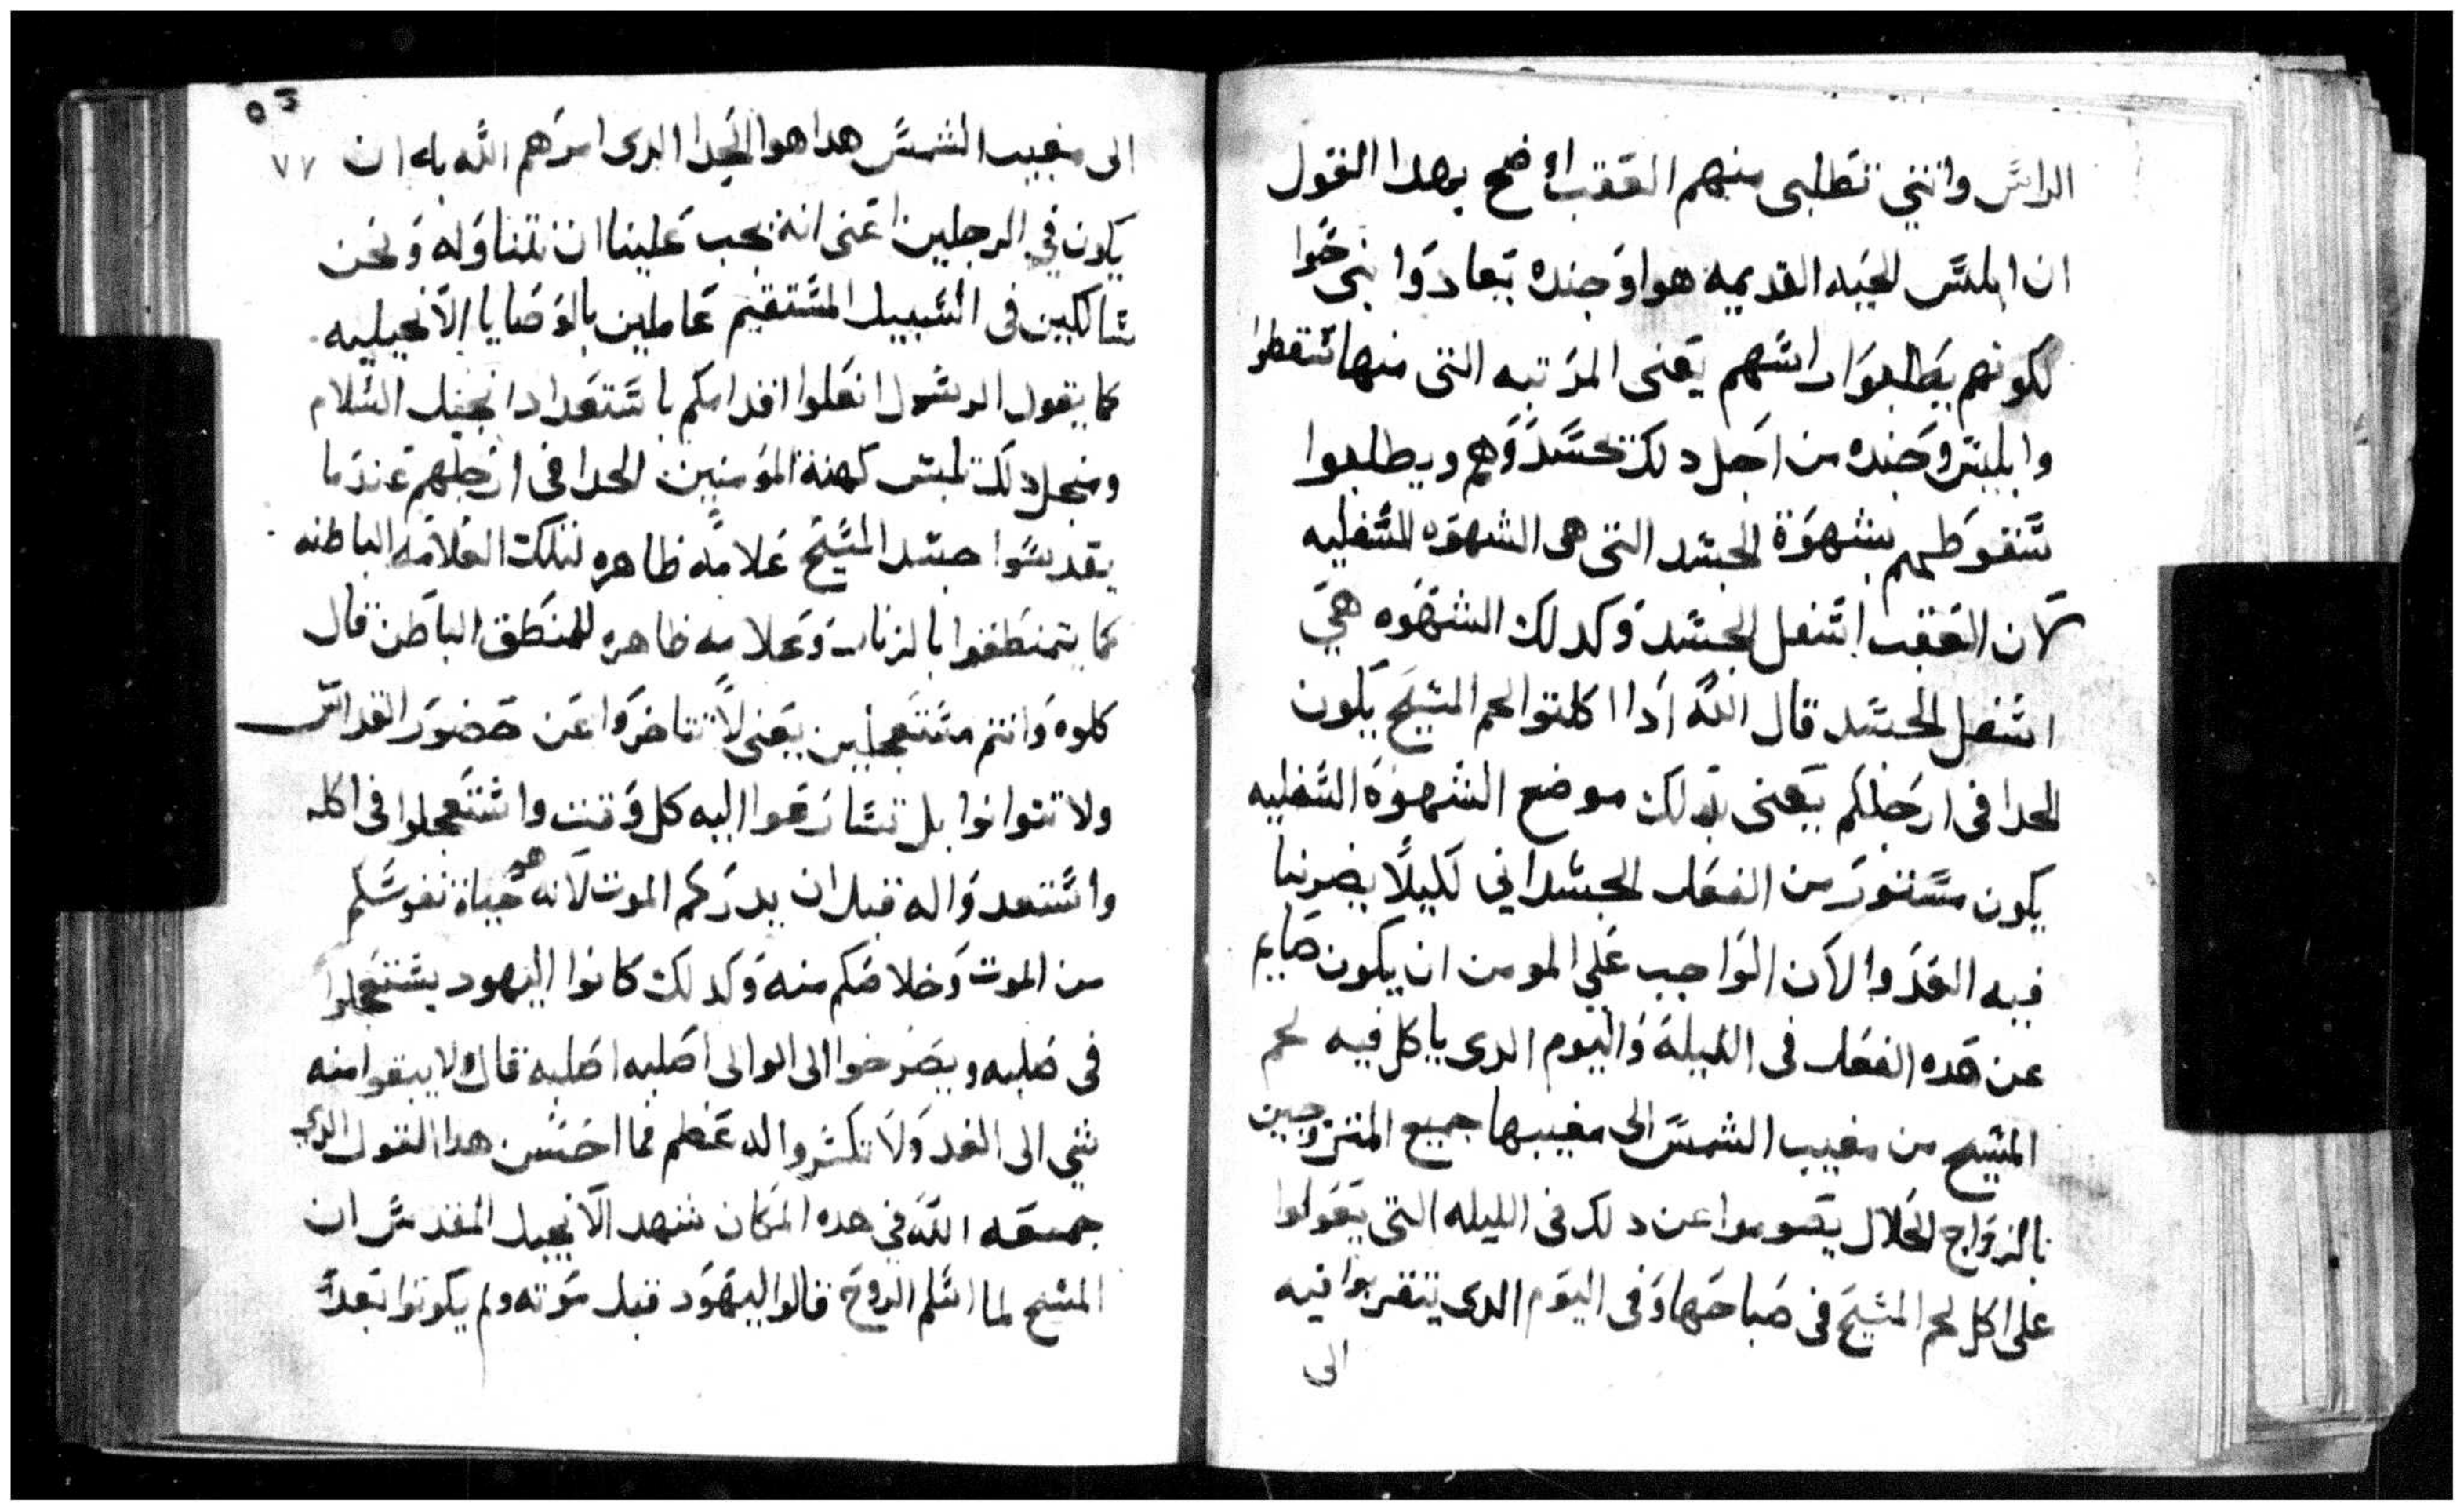 الراس وانتي تطلبى منهم العقب اوضح بهدا القول
ان ابليس الحيه القديمه هوا وجنده تعادوا بنى حوا
لكونهم يطلبوا راسهم يعنى المرتبه التى منها سقطوا
وابليس وجنده من اجل دلك تحسدوهم ويطلبوا
سقوطهم بشهوة الجسد التى هى الشهوه السفليه
لان العقب اسفل الجسد وكدلك الشهوه هي
اسفل الجسد قال الله ادا اكلتوا لحم المسيح يكون
الحدا فى ارجلكم يعنى بدلك موضع الشهوة السفليه
يكون مستور من الفعل الجسداني لكيلا يضرنا
فيه العدوا لان الواجب علي المومن ان يكون صايم
عن هده الفعل فى الليلة واليوم الدى ياكل فيه لحم
المسيح من مغيب الشمس الى مغيبها جميع المتزوجين
بالزواج الحلال يصوموا عن دلك فى الليله التى يقولوا
على اكل لحم المسيح فى صباحها وفى اليوم الدى يتقربوا فيه
الى
٥٣
٧٧
الى مغيب الشمس هدا هوا الحدا الدى امرهم الله به ان
يكون في الرجلين اعنى انه يجب علينا ان نتناوله ونحن
سالكين فى السبيل المستقيم عاملين بالوصايا الانجيليه
كما يقول الرسول انعلوا اقدامكم باستعداد انجيل السلام
ومنجل دلك تلبس كهنة المؤمنين الحدا فى ارجلهم عندما
يقدسوا جسد المسيح علامه ظاهره لتلك العلامه الباطنه
كما يتمنطقوا بالزنار وعلامه ظاهره للمنطق الباطن قال
كلوه وانتم مستعجلين يعنى لا تتاخروا عن حضور القداس
ولا تتوانوا بل تسارعوا اليه كل وقت واستعجلوا فى اكله
واستعدوا له قبل ان يدرككم الموت لانه هو حياة نفوسكم
من الموت وخلاصكم منه وكدلك كانوا اليهود يستعجلوا
فى صلبه ويصرخوا الى الوالى اصلبه اصلبه قال ولا يبقوا منه
شي الى الغد ولا تكسروا له عظم فما احسن هدا القول الدي
جمعه الله في هده المكان شهد الانجيل المقدس ان
المسيح لما اسلم الروح قالوا اليهود قبل موته ولم يكونوا بعد